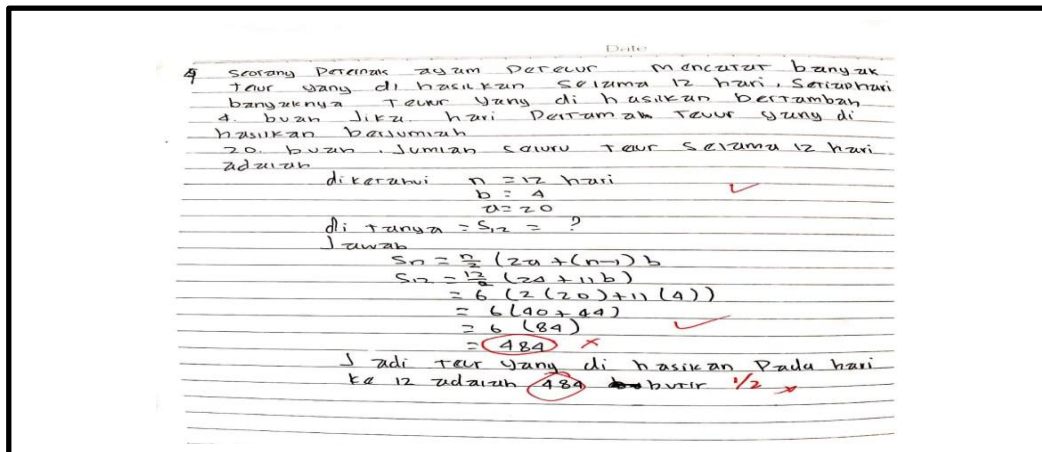 Date
4 Seorang Peternak ayam Petelur mencatat banyak
telur yang di hasilkan selama 12 hari, Setiap hari
banyaknya telur yang di hasilkan bertambah
4. buah Jika hari Pertama telur yang di
hasilkan berjumlah
20. buah. Jumlah seluru telur selama 12 hari
adalah
diketahui n = 12 hari
b = 4
a = 20
di tanya = S12 = ?
Jawab
Sn = n/2 (2a + (n-1) b
S12 = 12/2 (2a + 11 b)
= 6 (2 (20) + 11 (4))
= 6 (40 + 44)
= 6 (84)
= 484
Jadi telur yang di hasilkan Pada hari
ke 12 adalah 484 butir 1/2